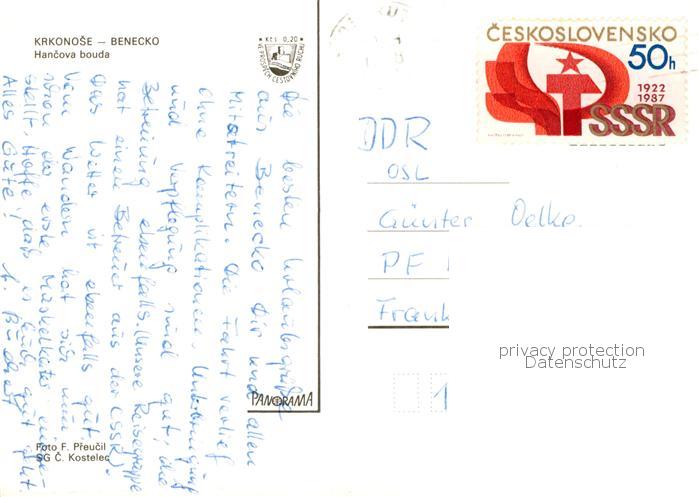 KRKONOŠE — BENECKO
Hančova bouda
Kčs 0,20
VE PROSPĚCH CESTOVNÍHO RUCHU
ČESKOSLOVENSKO
50h
1922
1987
SSSR
Die besten Urlaubsgrüße
aus Benecko Dir und allen
Mitstreitern. Die Fahrt verlief
ohne Komplikationen, Unterbringung
und Verpflegung sind gut, die
Betreuung ebenfalls. (Unsere Reisegruppe
hat einen Betreuer aus der CSSR).
Das Wetter ist ebenfalls gut,
vom Wandern hat sich nun
schon der erste Muskelkater einge-
stellt. Hoffe, daß es Euch gut geht.
Alles Gute!
DDR
OSL
Günter
PF
Frank
PANORAMA
1
privacy protection
Datenschutz
Foto F. Přeučil
SG Č. Kostelec